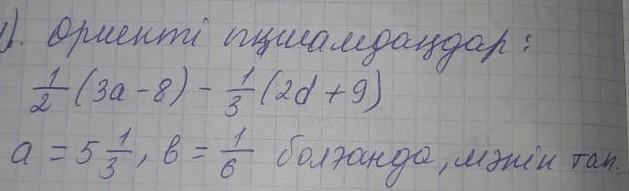 1). Өрнекті ықшамдаңдар:
1/2 (3a - 8) - 1/3 (2d + 9)
a = 5 1/3, b = 1/6 болғанда, мәнін тап.